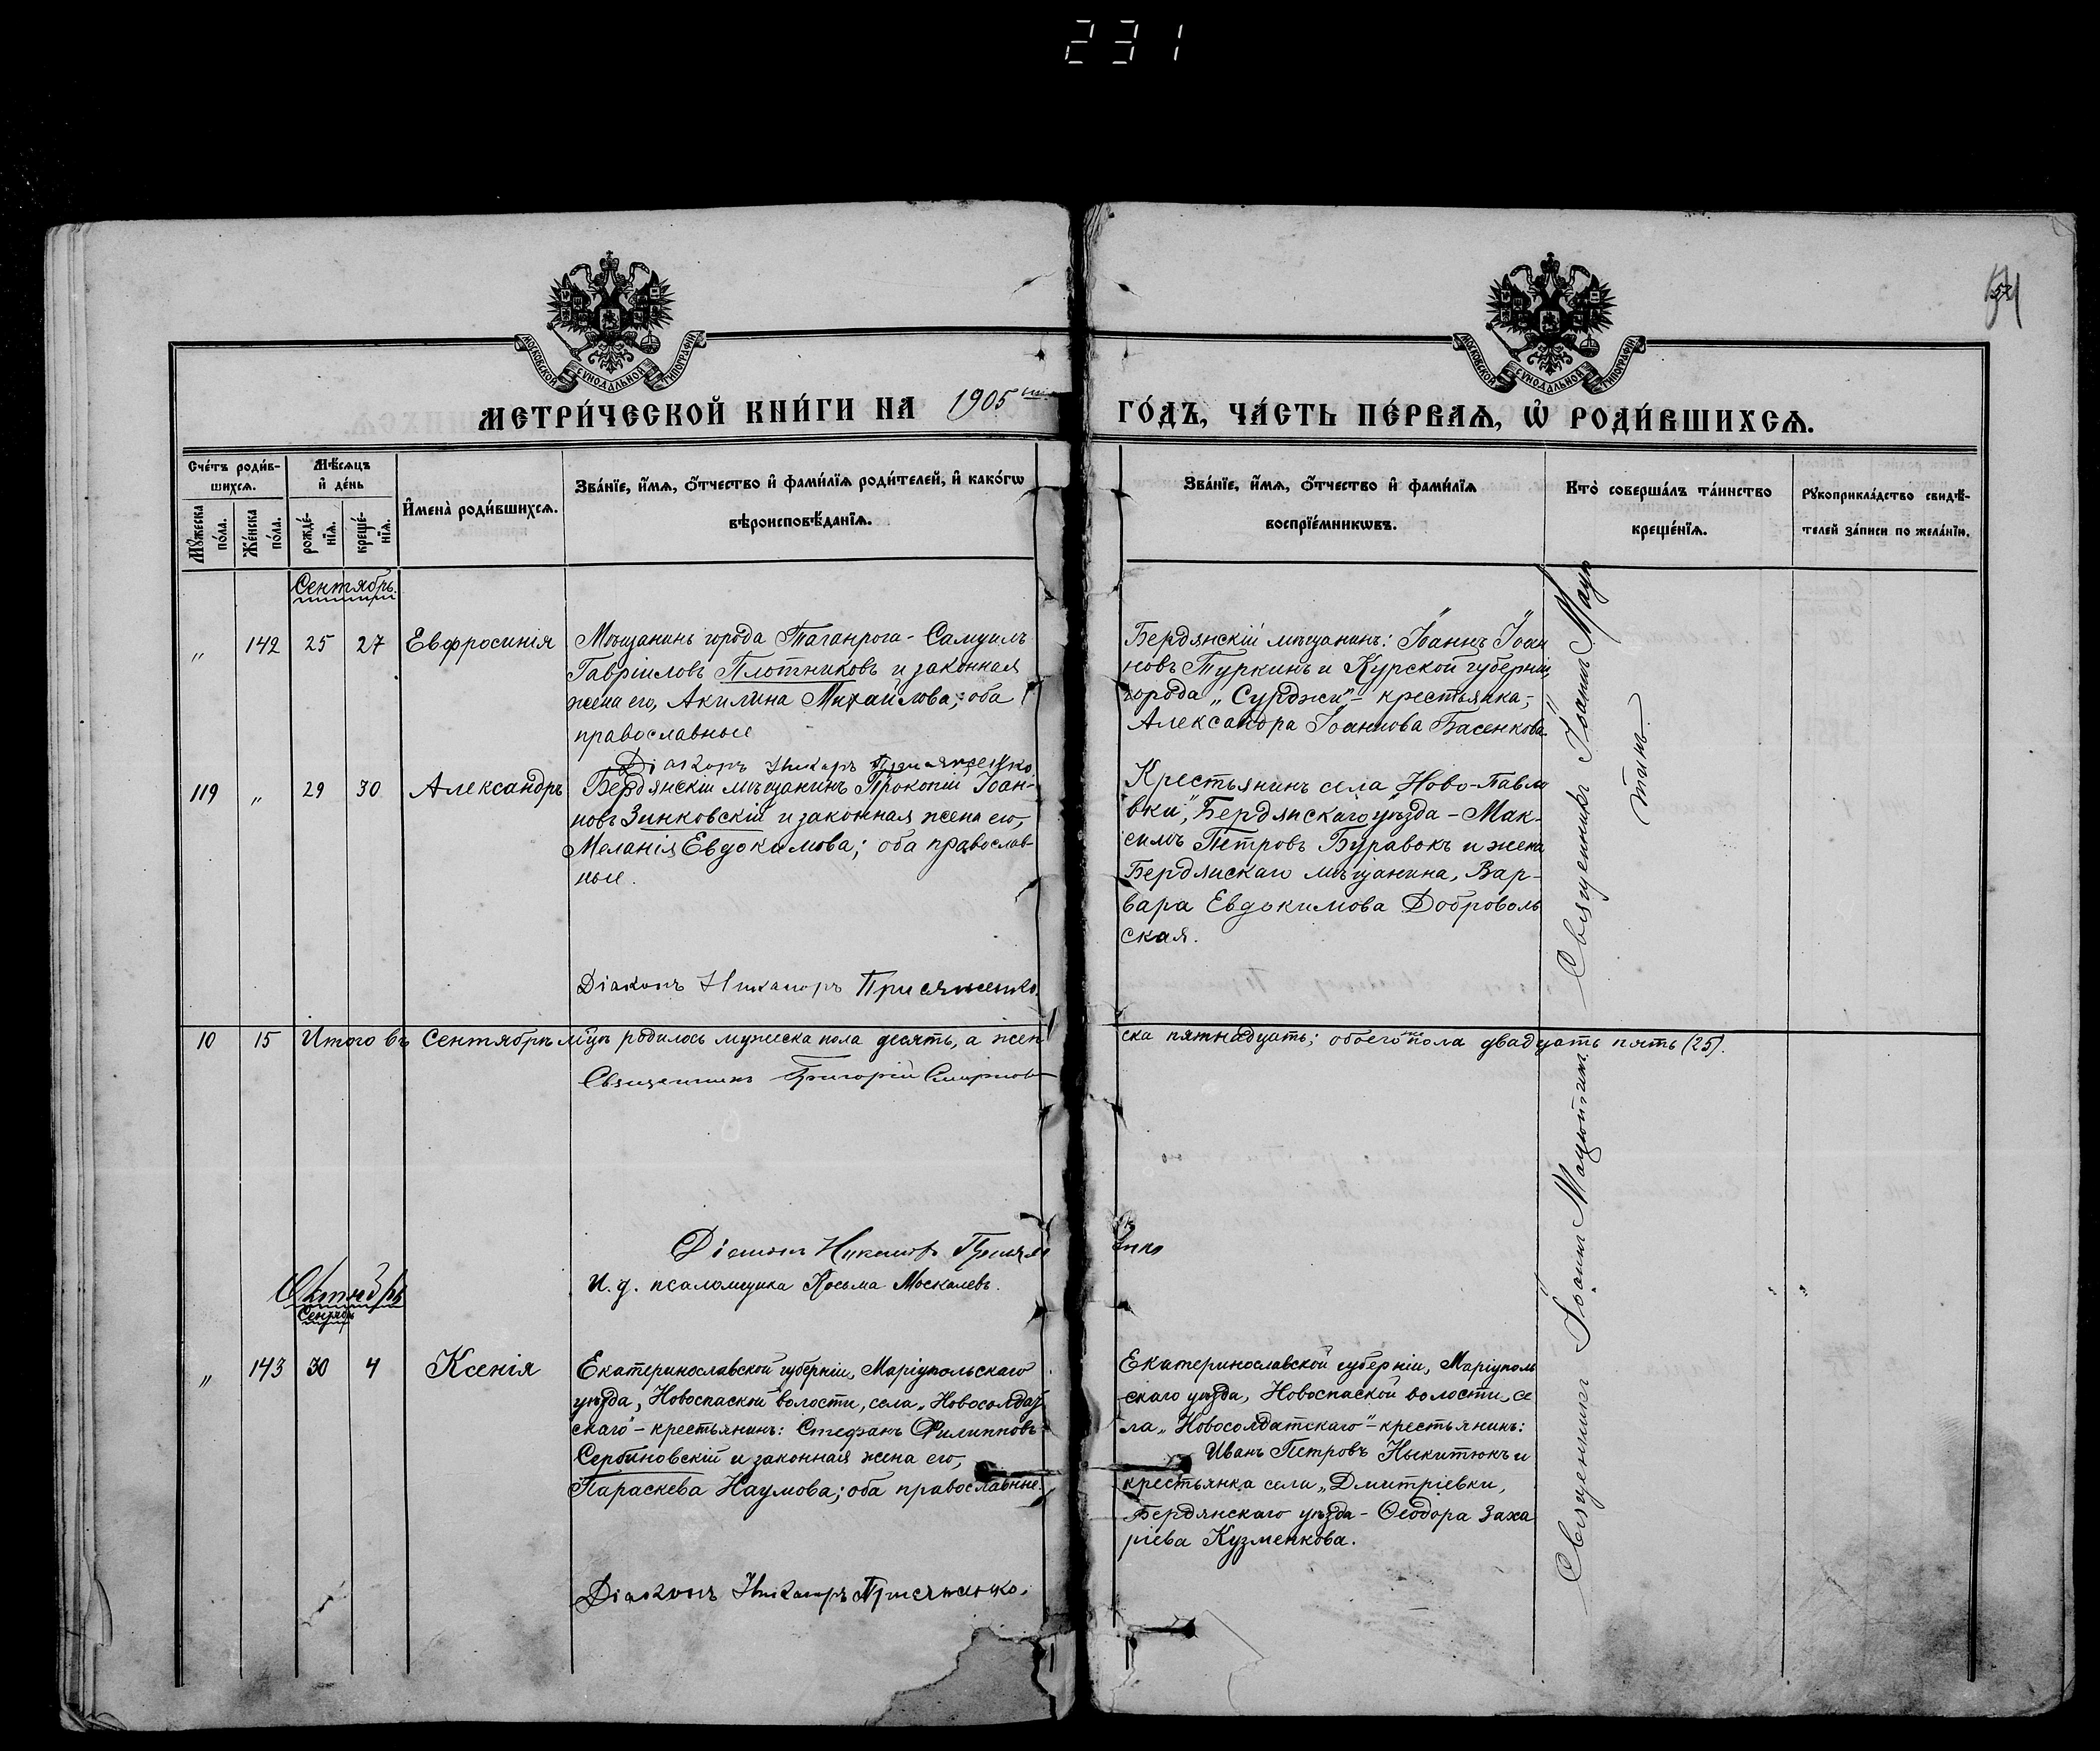 231
54
МОСКОВСКОЙ СУНОДАЛЬНОЙ ТИПОГРАФІИ
МОСКОВСКОЙ СУНОДАЛЬНОЙ ТИПОГРАФІИ
МЕТРИ́ЧЕСКОЙ КНИ́ГИ НА 1905 ГО́ДЪ, ЧА́СТЬ ПЕ́РВАѦ, Ѽ РОДИ́ВШИХСѦ.
Сче́тъ роди́в-
шихсѧ.
Мꙋ́жеска по́ла.
Же́нска по́ла.
Мѣ́сѧцъ
и҆ де́нь
рожде́-
нїѧ.
креще́-
нїѧ.
И҆мена̀ роди́вшихсѧ.
Зва́нїе, и҆́мѧ, ѻ҆́тчество и҆ фами́лїѧ роди́телей, и҆ како́гѡ
вѣроисповѣ́данїѧ.
Зва́нїе, и҆́мѧ, ѻ҆́тчество и҆ фами́лїѧ
воспрїе́мникѡвъ.
Кто̀ соверша́лъ та́инство
креще́нїѧ.
Рꙋкоприкла́дство свидѣ́-
телей за́писи по жела́нїи.
Сентябрь.
„ 142 25 27 Евфросинія
Мѣщанинъ города Таганрога - Самуилъ
Гавріиловъ Плотниковъ и законная
жена его, Акилина Михаилова; оба
православные
Діаконъ Никаноръ Присяженко
Бердянскій мѣщанинъ: Іоаннъ Іоан
новъ Туркинъ и Курской губерніи,
города „Суджи" - крестьянка,
Александра Іоаннова Басенкова
119 „ 29 30 Александръ
Бердянскій мѣщанинъ Прокопій Іоан-
новъ Зинковскій и законная жена его,
Меланія Евдокимова; оба православ-
ные.
Діаконъ Никаноръ Присяженко.
Крестьянинъ села Ново-Павло
вки", Бердянскаго уѣзда - Мак-
симъ Петровъ Буравокъ и жена
Бердянскаго мѣщанина, Вар-
вара Евдокимова Доброволь
ская.
Священникъ Іоаннъ Мацю
тинъ
10 15 Итого въ Сентябрѣ м̃цѣ родилось мужеска пола десять, а жен
ска пятнадцать; обоего пола двадцать пять (25).
Священникъ Григорій Смирновъ
Діаконъ Никаноръ Присяженко
И. д. псаломщика Косьма Москалевъ.
Октябрь
Сентябрь
„ 143 30 4 Ксенія
Екатеринославской губерніи, Маріупольскаго
уѣзда, Новоспаской волости, села „Новосолдат
скаго" - крестьянинъ: Стефанъ Филипповъ
Сербиновскій и законная жена его,
Параскева Наумова; оба православные.
Діаконъ Никаноръ Присяженко.
Екатеринославской губерніи, Маріуполь
скаго уѣзда, Новоспаской волости, се
ла „Новосолдатскаго" - крестьянинъ:
Иванъ Петровъ Ныкитюкъ и
крестьянка села „Дмитріевки,
Бердянскаго уѣзда - Ѳеодора Заха
ріева Кузменкова.
Священникъ Іоаннъ Мацютинъ.